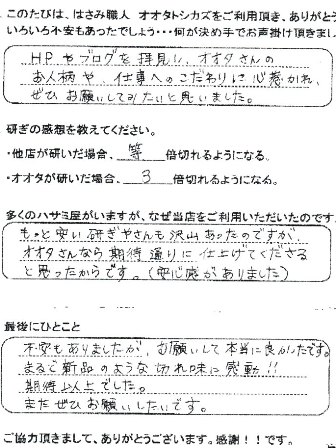 このたびは、はさみ職人 オオタトシカズをご利用頂き、ありがとう
いろいろ不安もあったでしょう・・・何が決め手でお声掛け頂きまし
HPやブログを拝見し、オオタさんの
お人柄や、仕事へのこだわりに心惹かれ、
ぜひお願いしてみたいと思いました。
研ぎの感想を教えてください。
・他店が研いだ場合、 等 倍切れるようになる。
・オオタが研いだ場合、 3 倍切れるようになる。
多くのハサミ屋がいますが、なぜ当店をご利用いただいたのです
もっと安い研ぎやさんも沢山あったのですが
オオタさんなら期待通りに仕上げてくださる
と思ったからです。(安心感がありました)
最後にひとこと
不安もありましたが、お願いして本当に良かったです。
まるで新品のような切れ味に感動!!
期待以上でした。
またぜひお願いしたいです。
ご協力頂きまして、ありがとうございます。感謝!!です。